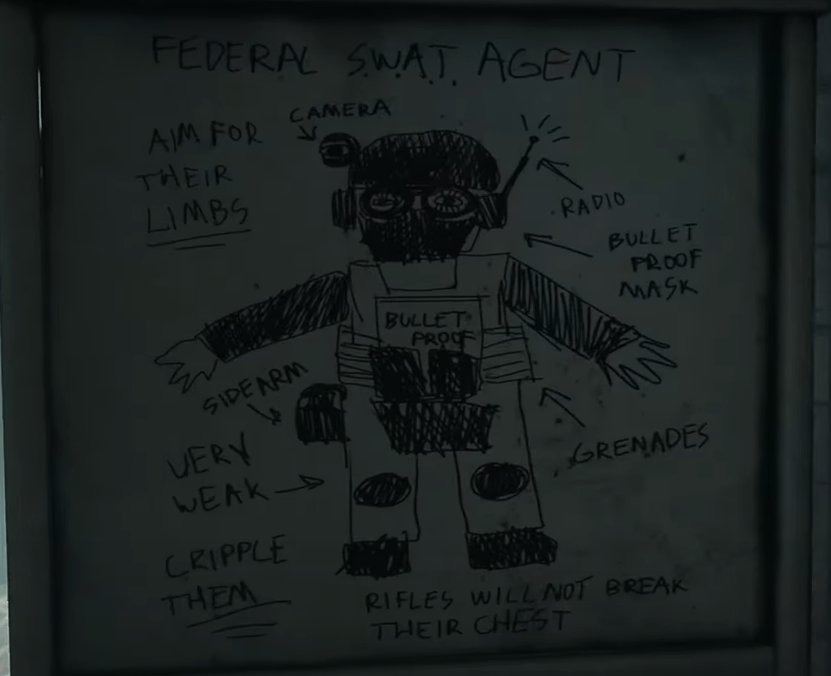 FEDERAL S.W.A.T. AGENT
CAMERA
AIM FOR
THEIR
LIMBS
RADIO
BULLET
PROOF
MASK
BULLET
PROOF
SIDEARM
VERY
WEAK
GRENADES
CRIPPLE
THEM
RIFLES WILL NOT BREAK
THEIR CHEST